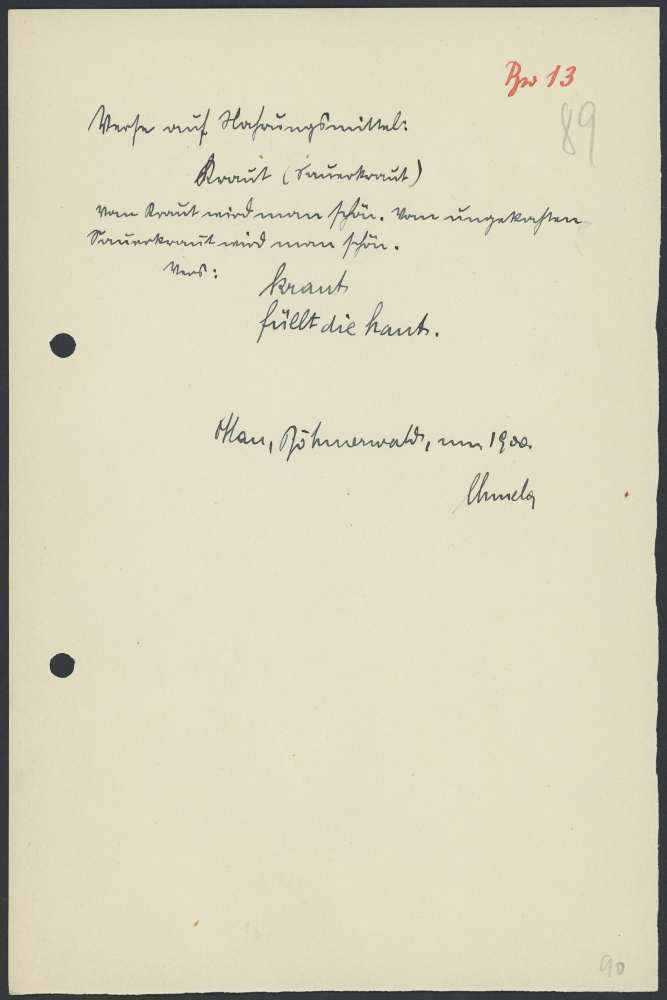 13
89
Verse auf Nahrungsmittel:
Kraut (Sauerkraut)
Vom Kraut wird man schön. Vom ungekochten
Sauerkraut wird man schön.
Vers:
kraut
füllt die haut.
Böhmerwald, um 1900.
Chmela
90